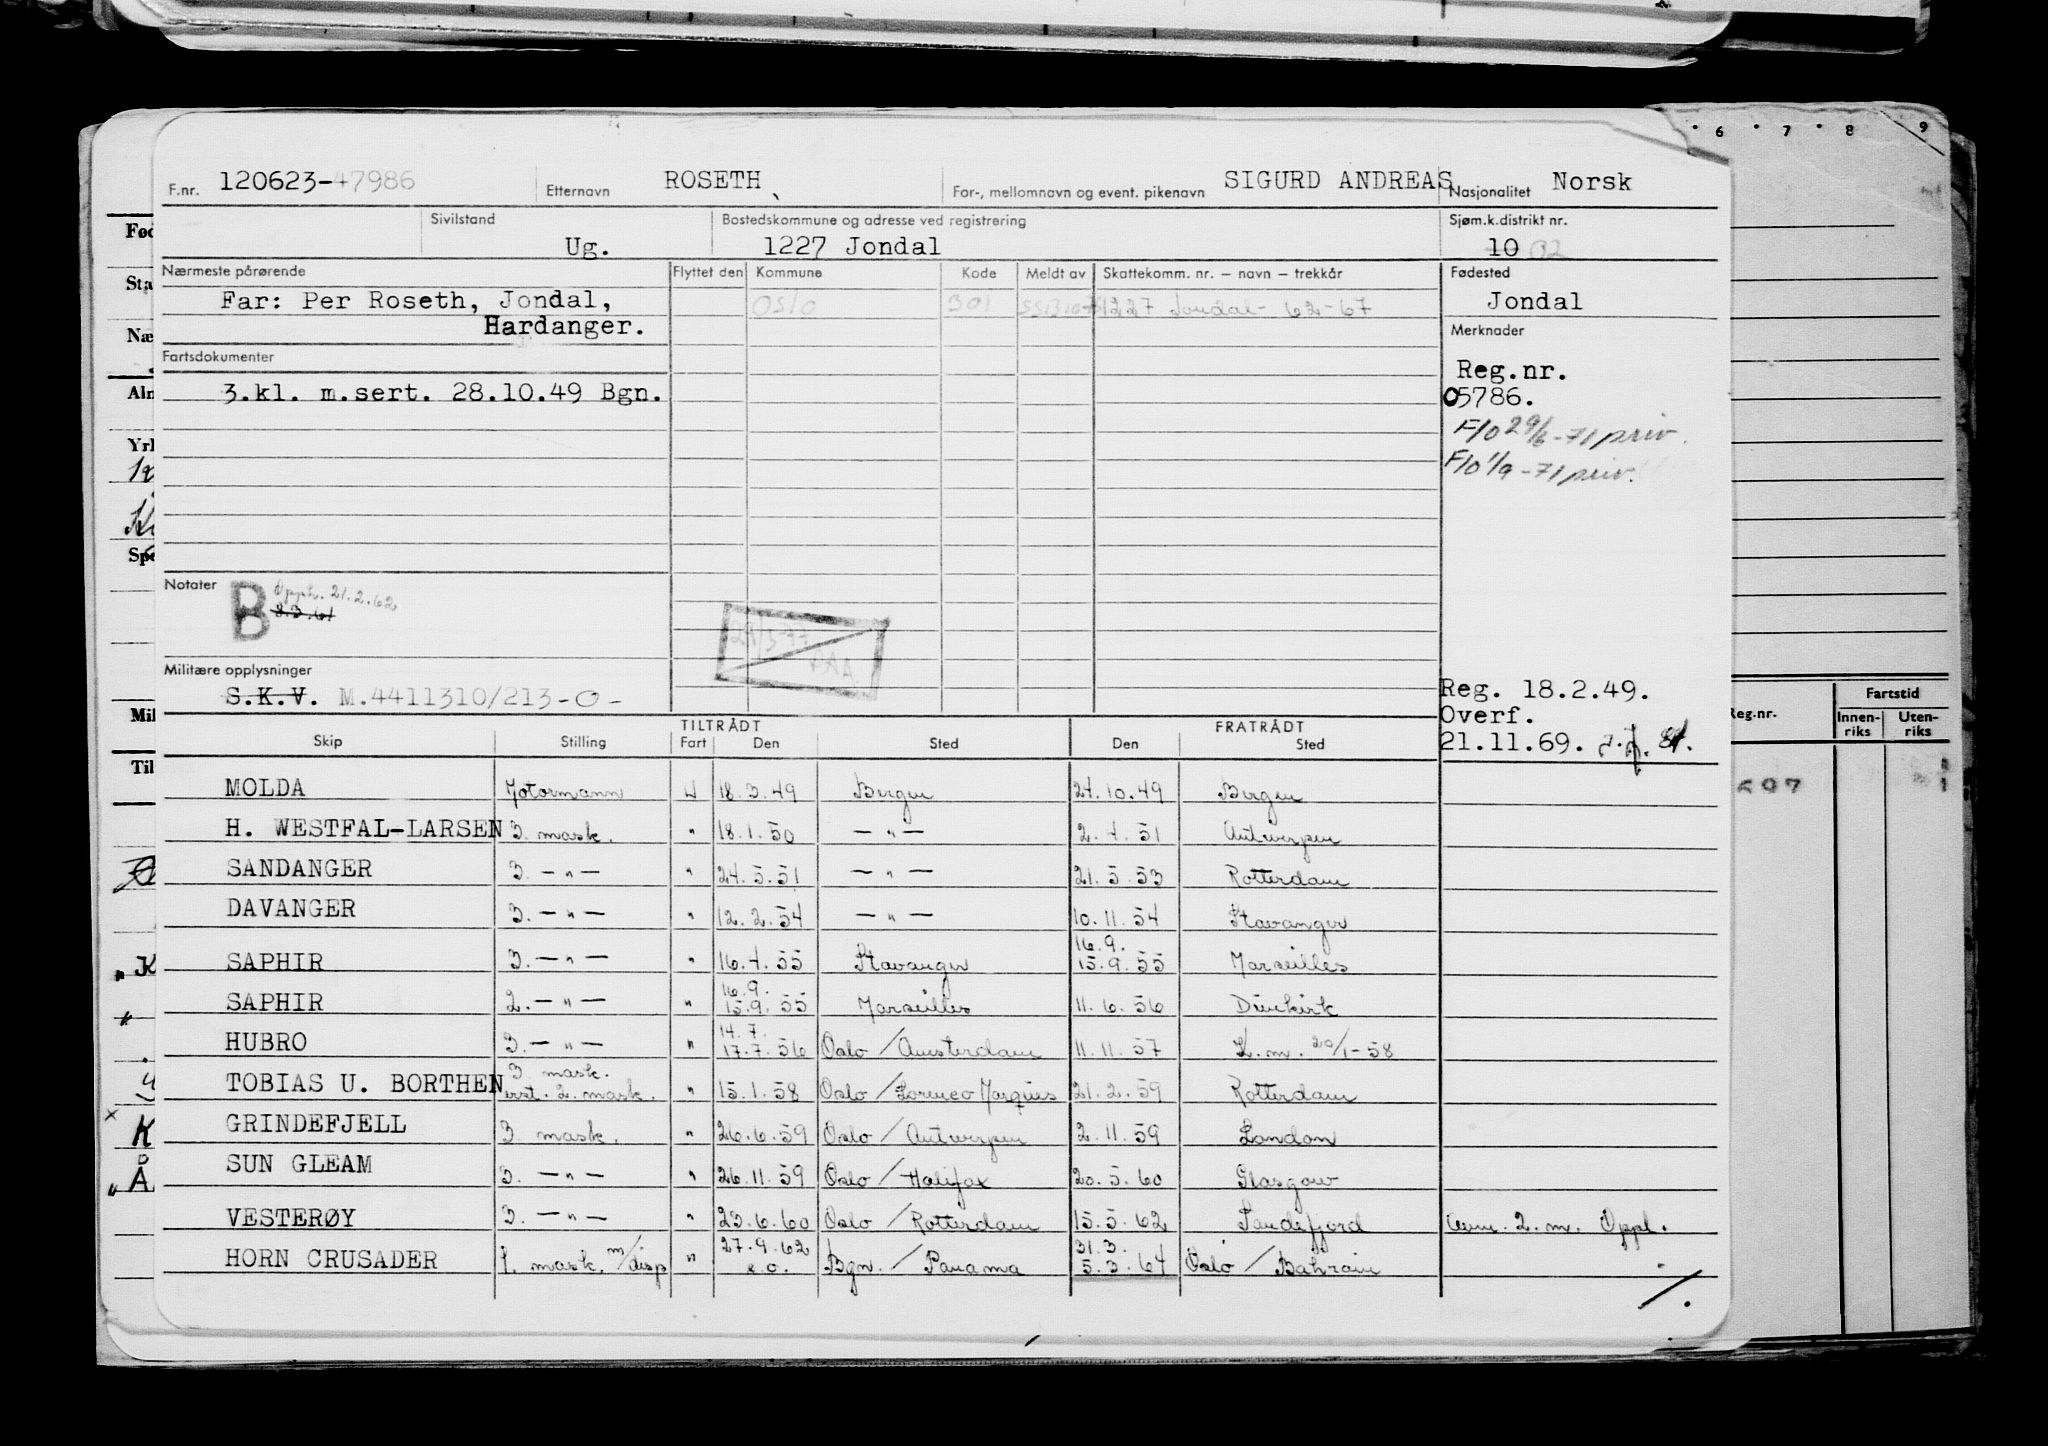 6 7 8 9
F.nr. 120623-47986 Etternavn ROSETH For-, mellomnavn og event. pikenavn SIGURD ANDREAS Nasjonalitet Norsk
Sivilstand Ug. Bostedskommune og adresse ved registrering 1227 Jondal Sjøm.k.distrikt nr. 10 02
Nærmeste pårørende Flyttet den Kommune Kode Meldt av Skattekomm. nr. – navn – trekkår Fødested
Far: Per Roseth, Jondal, Oslo 301 1227 Jondal - 62-67 Jondal
Hardanger. Merknader
Fartsdokumenter Reg.nr.
3.kl. m.sert. 28.10.49 Bgn. 05786.
F/o 29/6-71 priv.
F/o 1/9-71 priv.
Notater B Opph. 21.2.62
8.3.61
Militære opplysninger
S.K.V. M.4411310/213-0- Reg. 18.2.49.
Overf.
21.11.69.
TILTRÅDT FRATRÅDT
Skip Stilling Fart Den Sted Den Sted
MOLDA Motormann U 18.3.49 Bergen 24.10.49 Bergen
H. WESTFAL-LARSEN 3. mask. " 18.1.50 — " — 2.4.51 Antwerpen
SANDANGER 3. — " — " 24.5.51 — " — 21.5.53 Rotterdam
DAVANGER 3. — " — " 12.2.54 — " — 10.11.54 Stavanger
SAPHIR 3. — " — " 16.4.55 Stavanger 16.9. 15.9.55 Marseilles
SAPHIR 2. — " — " 16.9. 15.9.55 Marseilles 11.6.56 Dunkirk
HUBRO 3. — " — " 14.7. 17.7.56 Oslo / Amsterdam 11.11.57 L.m. 20/1-58
TOBIAS U. BORTHEN 3 mask. erst. 2. mask. " 15.1.58 Oslo / Lorenco Marquis 21.2.59 Rotterdam
GRINDEFJELL 3 mask. " 26.6.59 Oslo / Antwerpen 2.11.59 London
SUN GLEAM 3. — " — " 26.11.59 Oslo / Halifax 20.5.60 Glasgow
VESTERØY 3. — " — " 23.6.60 Oslo / Rotterdam 15.5.62 Sandefjord 2. m. Oppl.
HORN CRUSADER 1. mask. m/disp " 27.9.62 e.o. Bgn. / Panama 31.3. 5.3.64 Oslo / Bahrain
Reg.nr. Fartstid
Innen-riks Uten-riks